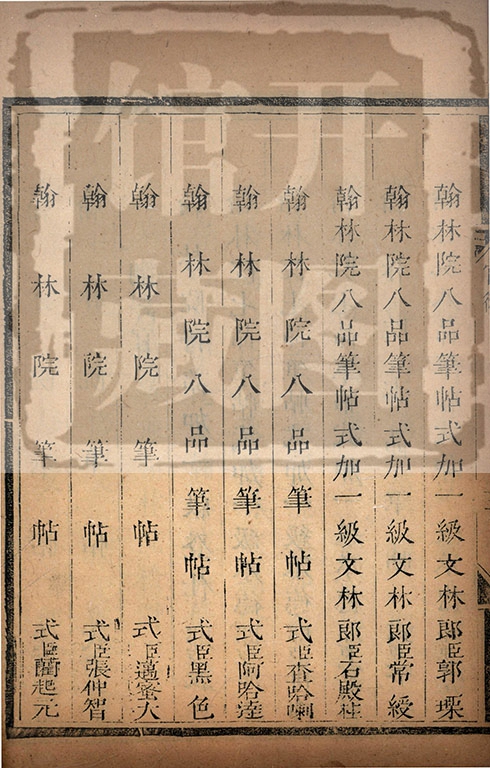 翰林院八品筆帖式加一級文林郎臣郭瑮
翰林院八品筆帖式加一級文林郎臣常綬
翰林院八品筆帖式加一級文林郎臣石殿柱
翰林院八品筆帖式臣查哈喇
翰林院八品筆帖式臣阿哈達
翰林院八品筆帖式臣黑色
翰林院筆帖式臣邁密大
翰林院筆帖式臣張仲智
翰林院筆帖式臣藺起元